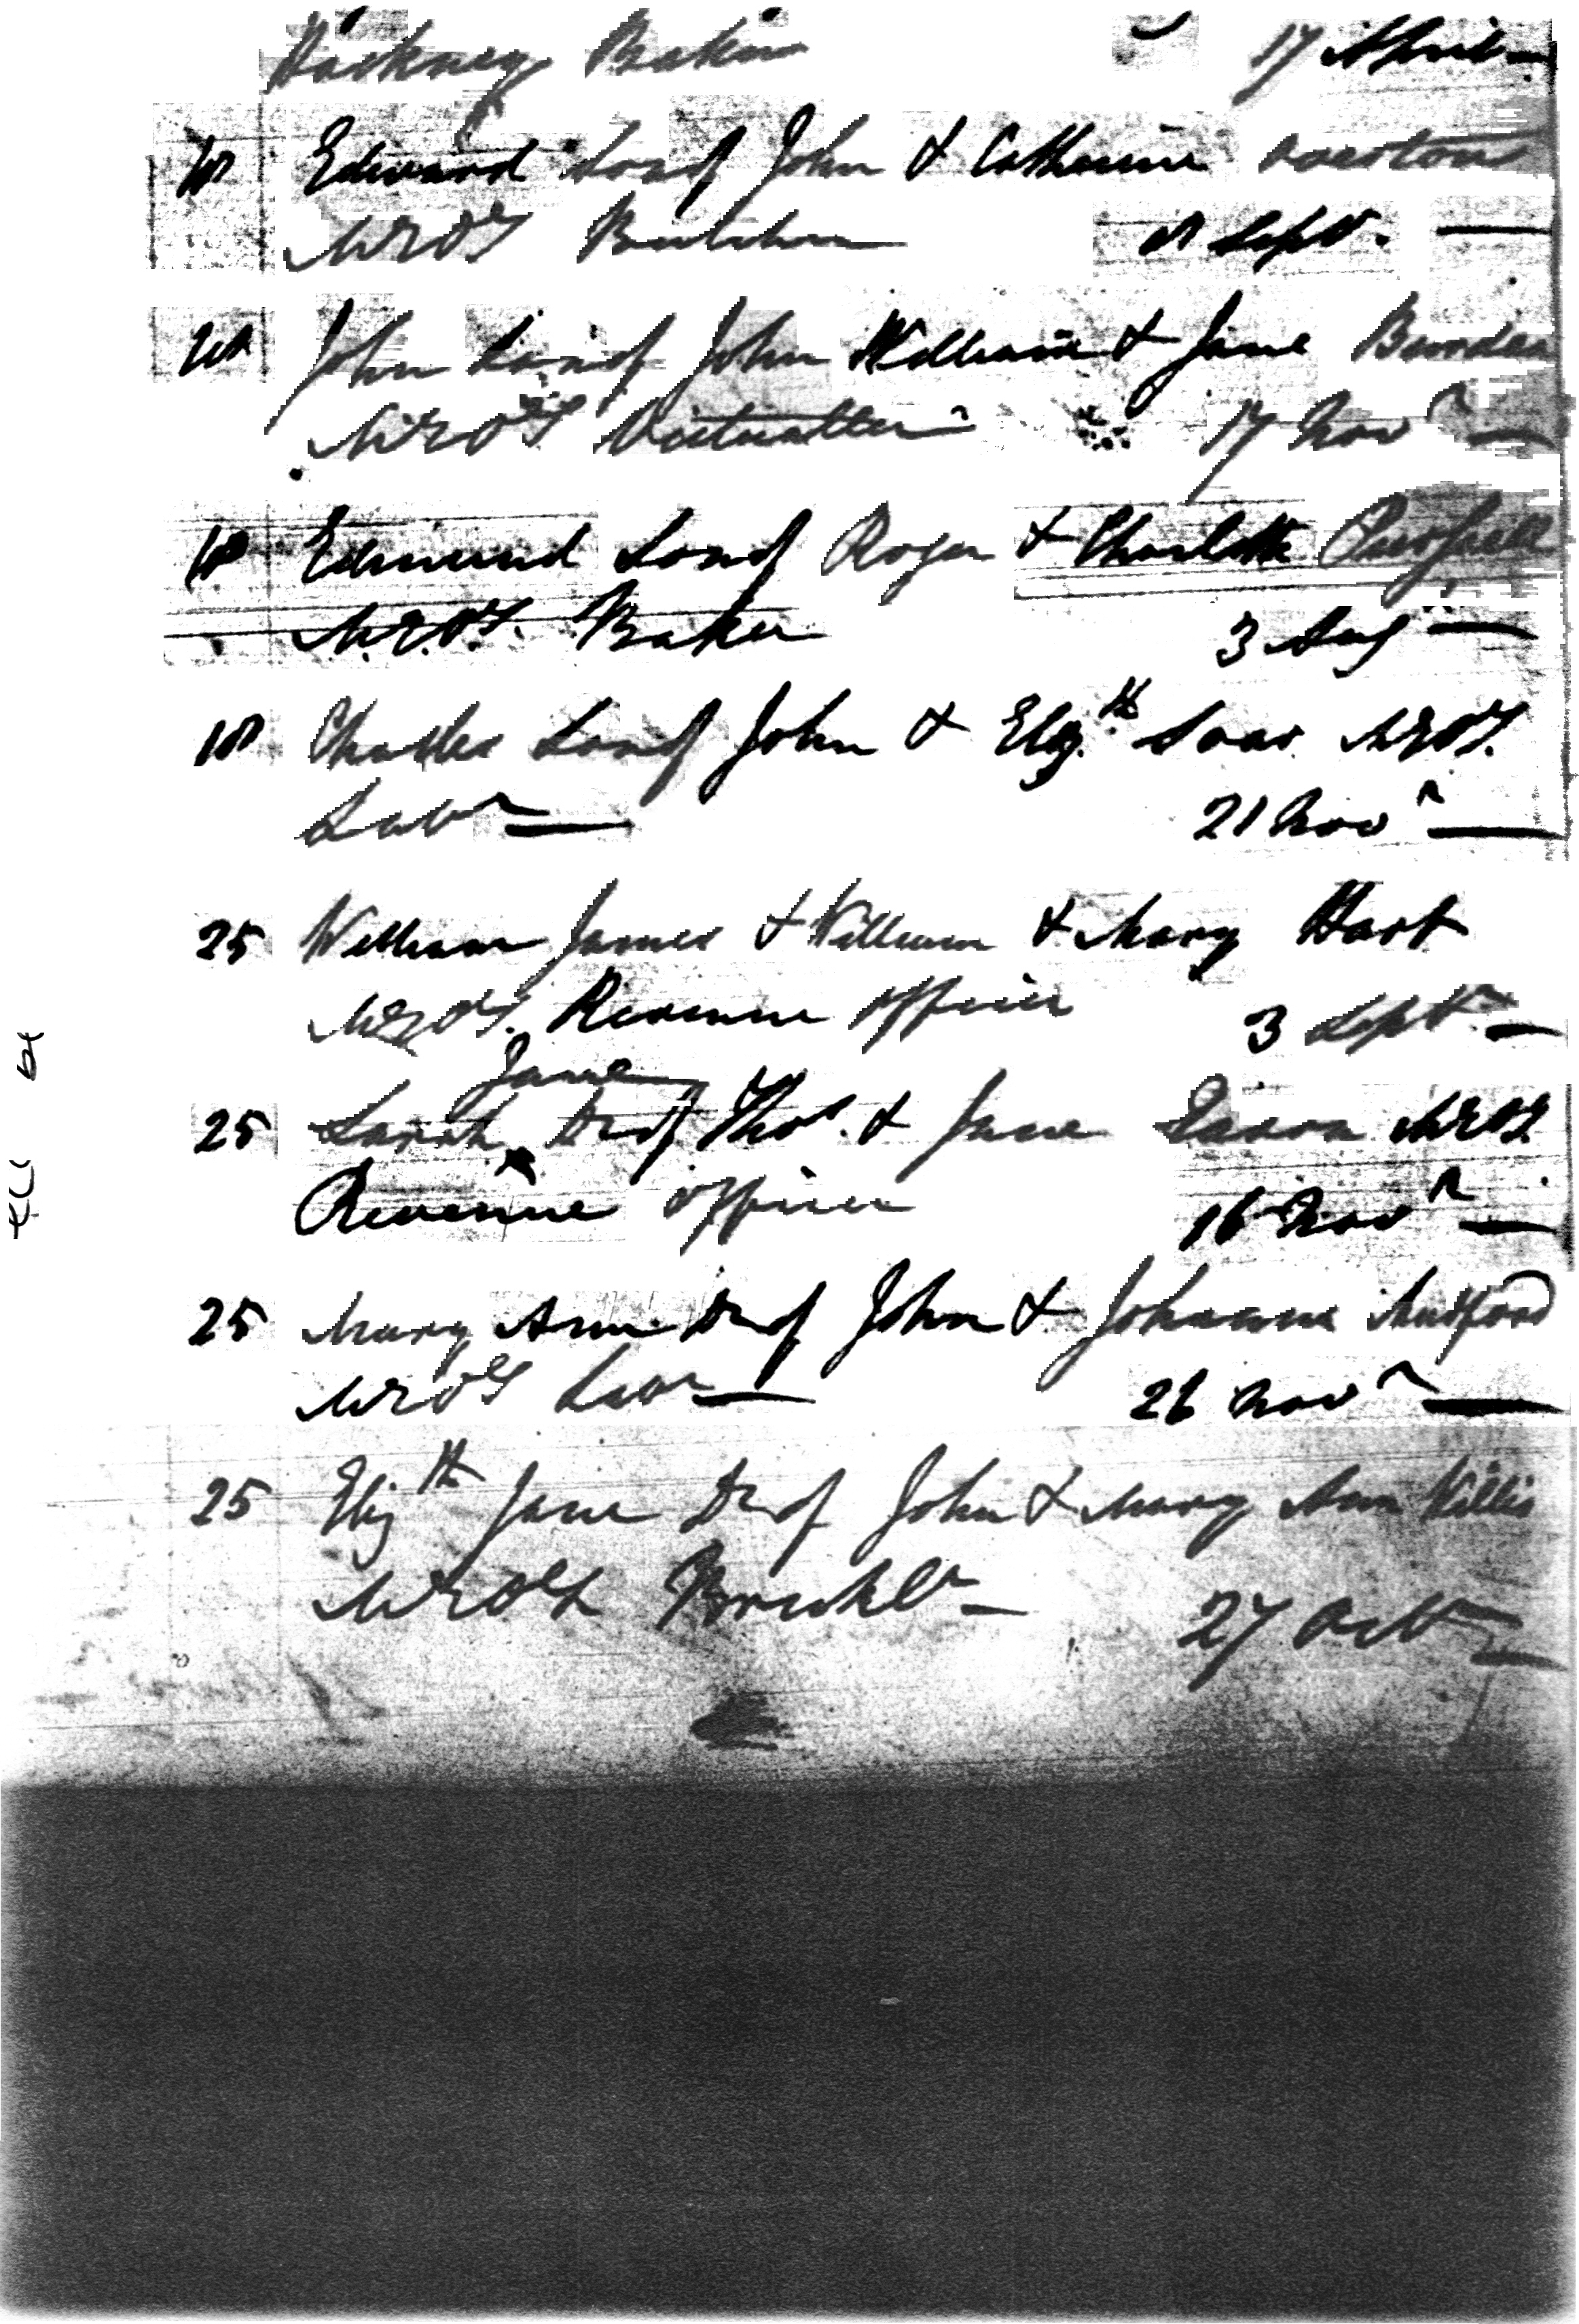 Hackney Baker 17 April
18 Edward Son of John & Catherine Overton
M.E.O.T. Butcher 8 Sept.
John Son of John William & Jane Burden
M.E.O.T. Victualler 17 Novr
18 Edmund Son of Roger & Charlotte
M.E.O.T. Baker 3 Aug
18 Charles Son of John & Elizth Saar M.E.O.T.
Labr 21 Novr
25 William James & William & Mary Hart
M.E.O.T. Revenue Officer 3 Septr
Jane
25 Sarah Dr of Thos. & Jane M.E.O.T.
Revenue Officer 16 Novr
25 Mary Ann Dr of John & Johanna Mudford
M.E.O.T. Labr 26 Novr
25 Elizth Jane Dr of John & Mary Ann Willis
M.E.O.T. Brickla 27 Octr